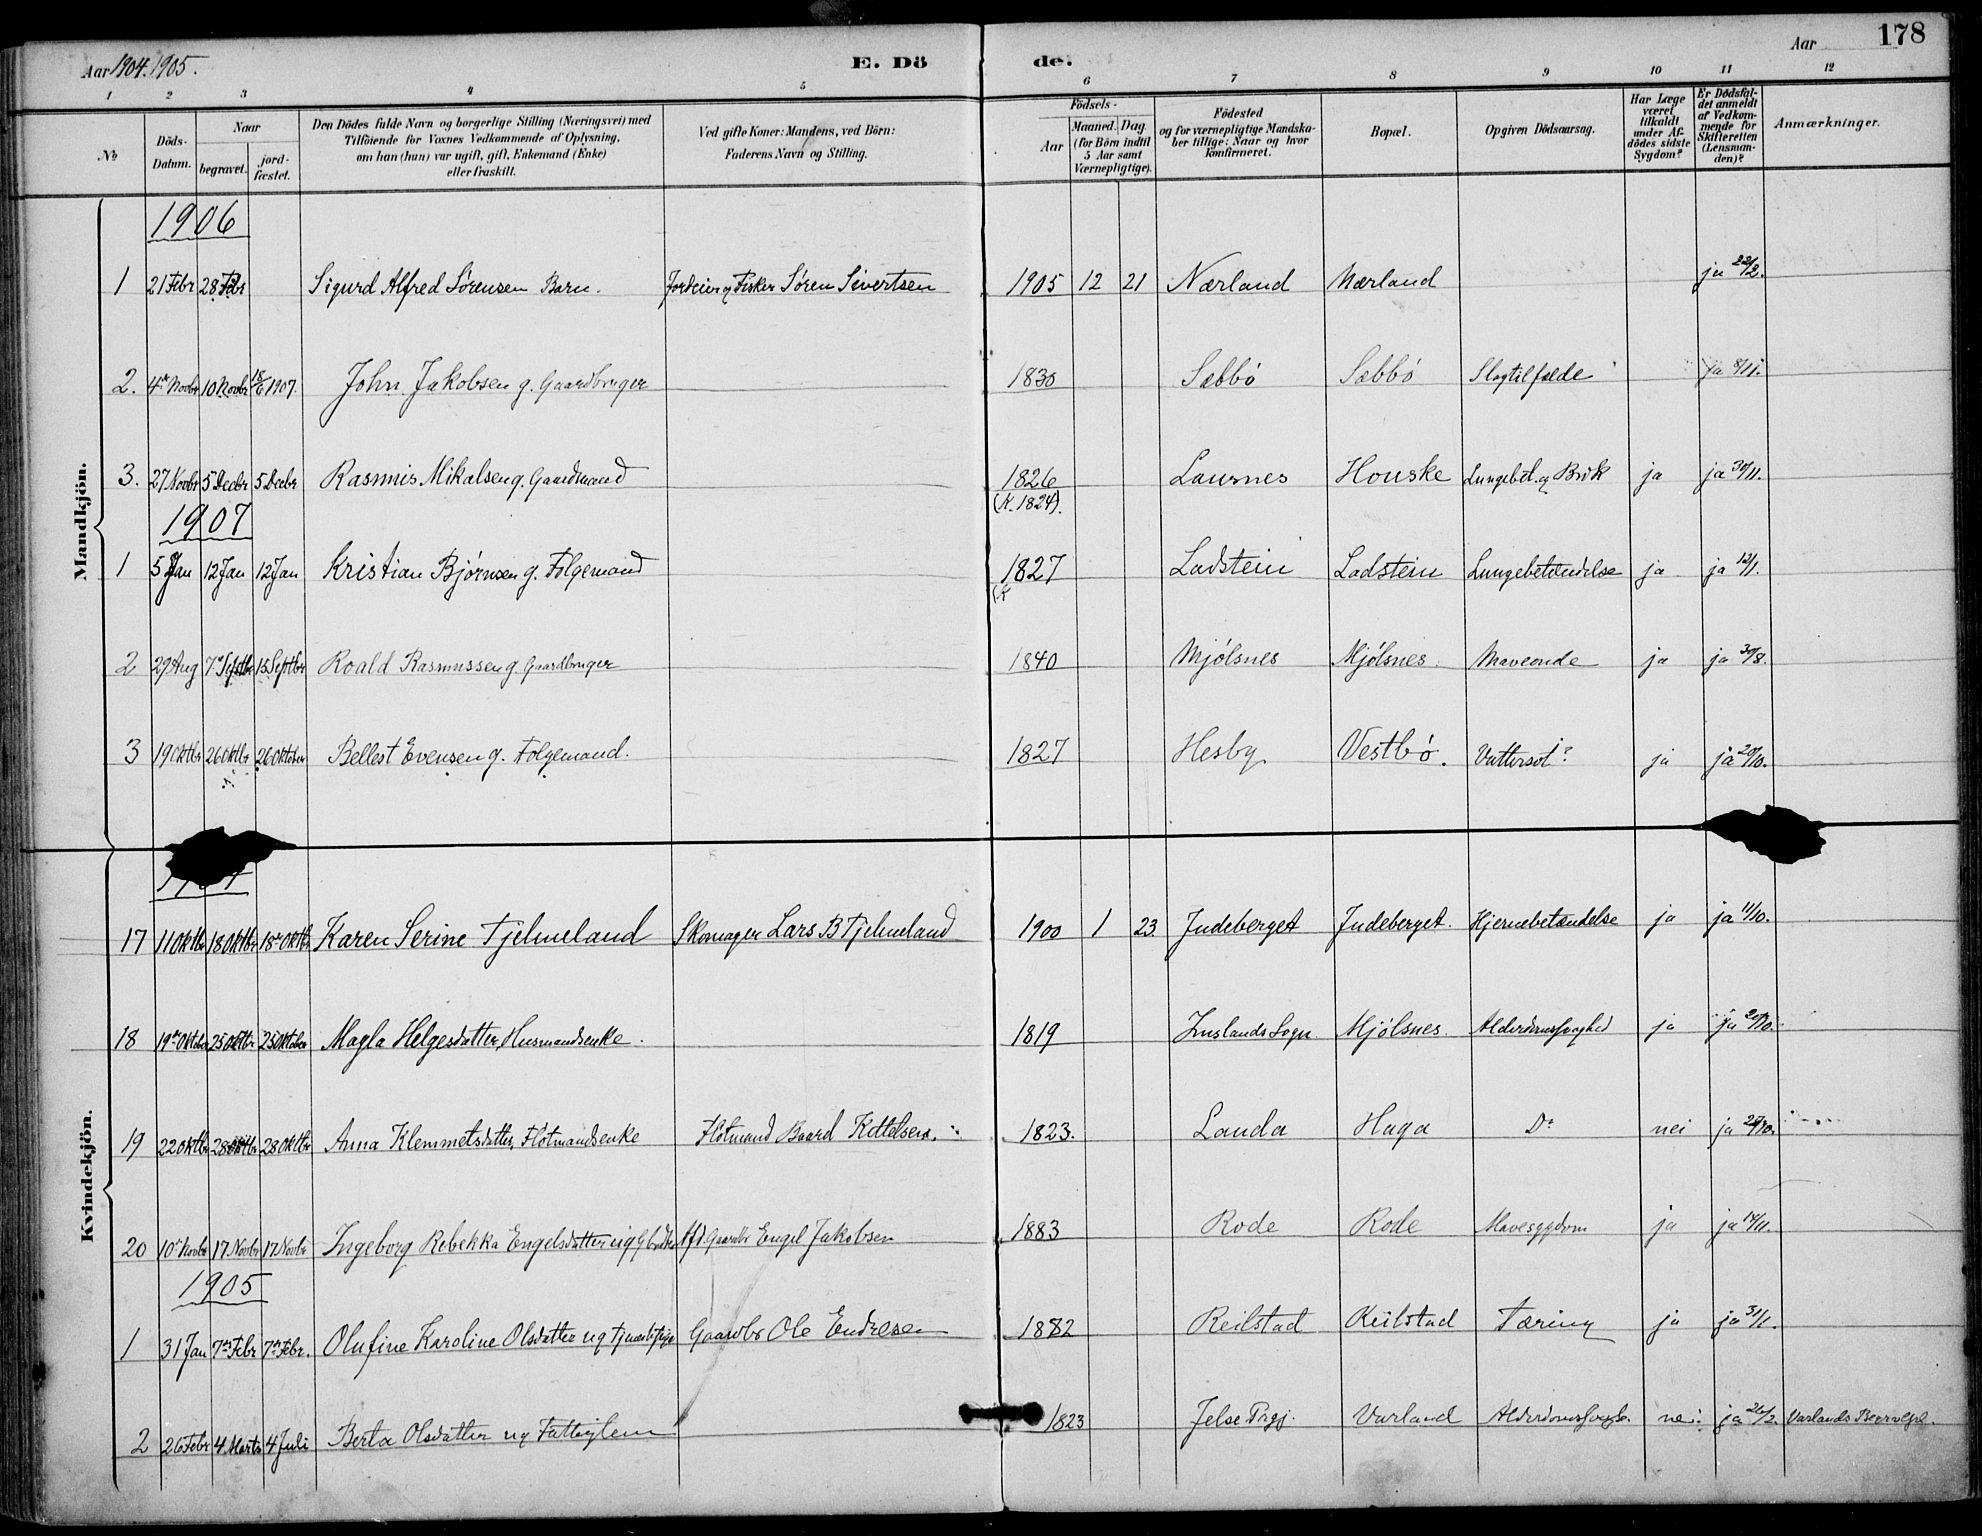 Aar 1904. 1905.
E. Dö
de.
Aar
178
1 2 3 4 5 6 7 8 9 10 11 12
No
Döds-Datum.
Naar
begravet.
jord-fæstet.
Den Dödes fulde Navn og borgerlige Stilling (Næringsvei) med
Tilföiende for Voxnes Vedkommende af Oplysning,
om han (hun) var ugift, gift, Enkemand (Enke)
eller fraskilt.
Ved gifte Koner: Mandens, ved Börn:
Faderens Navn og Stilling.
Födsels-
Aar
Maaned. Dag
(for Börn indtil
5 Aar samt
Værnepligtige).
Födested
og for værnepligtige Mandska-
ber tillige: Naar og hvor
konfirmeret.
Bopæl.
Opgiven Dödsaarsag.
Har Læge
været
tilkaldt
under Af-
dödes sidste
Sygdom?
Er Dödsfal-
det anmeldt
af Vedkom-
mende for
Skifteretten
(Lensman-
den)?
Anmærkninger.
Mandkjön.
1906
1 21 Febr 28 Febr Sigurd Alfred Sørensen Barn. Jordeier og Fisker Søren Sivertsen 1905 12 21 Nærland Nærland ja 22/2.
2. 4de Novbr 10 Novbr 18/6 1907. John Jakobsen g. Gaardbruger 1830 Sæbbö Sæbbö Slagtilfælde ja 8/11.
3. 27 Novbr 5 Decbr 5 Decbr Rasmus Mikalsen g. Gaardmand 1826 Laurnes Houske Lungebet. og Brok ja ja 30/11.
(K. 1824).
1907
1 5 Jan 12 Jan 12 Jan Kristian Bjørnsen g. Folgemand 1827 Ladstein Ladstein Lungebetændelse ja ja 12/1.
(K
2 29 Aug 7de Septbr 15 Septbr Roald Rasmussen g. Gaardbruger 1840 Mjölsnes Mjölsnes. Maveonde ja ja 30/8.
3 19 Oktbr 26 Oktbr 26 Oktober Bellest Evensen g. Folgemand. 1827 Hesby Vestbö. Vattersot? ja ja 20/10.
Kvindekjön.
17 11 Oktbr 18 Oktbr 18de Oktbr Karen Serine Tjelmeland Skomager Lars B Tjelmeland 1900 1 23 Judeberget Judeberget. Hjernebetændelse ja ja 11/10.
18 19de Oktbr 25 Oktbr 25 Oktober Magla Helgesdatter, Husmandsenke. 1819 Imslands Sogn. Mjölsnes. Alderdomssvaghed ja ja 20/10.
19 22 Oktbr 28 Oktbr 28 Oktbr Anna Klemmetsdatter, Flotmandsenke Flotmand Baard Kittelsen. 1823. Landa Haga Do nei ja 27/10.
20 10de Novbr 17 Novbr 17 Novbr Ingeborg Rebekka Engelsdatter ug Afd. Gaardbr Engel Jakobsen 1883 Rode Rode Mavesygdom ja ja 14/11.
1905
1 31 Jan 7de Febr 7de Febr. Olufine Karoline Olsdatter ug Tjenestepige Gaardbr Ole Endresen 1882 Reilstad Reilstad Tæring ja ja 31/1.
2 26 Febr 4 Marts 4 Juli Berta Olsdatter ug Fattiglem 1823 Jelse Prgj. Varland Alderdomssvagh. nei. ja 26/2. Varlands